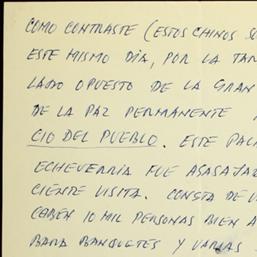 COMO CONTRASTE (ESTOS CHINOS SO
ESTE MISMO DÍA, POR LA TAR
LADO OPUESTO DE LA GRAN
DE LA PAZ PERMANENTE
CIO DEL PUEBLO. ESTE PALA
ECHEVERRIA FUE AGASAJAD
CIENTE VISITA. CONSTA DE U
CABEN 10 MIL PERSONAS BIEN A
PARA BANQUETES Y VARIAS